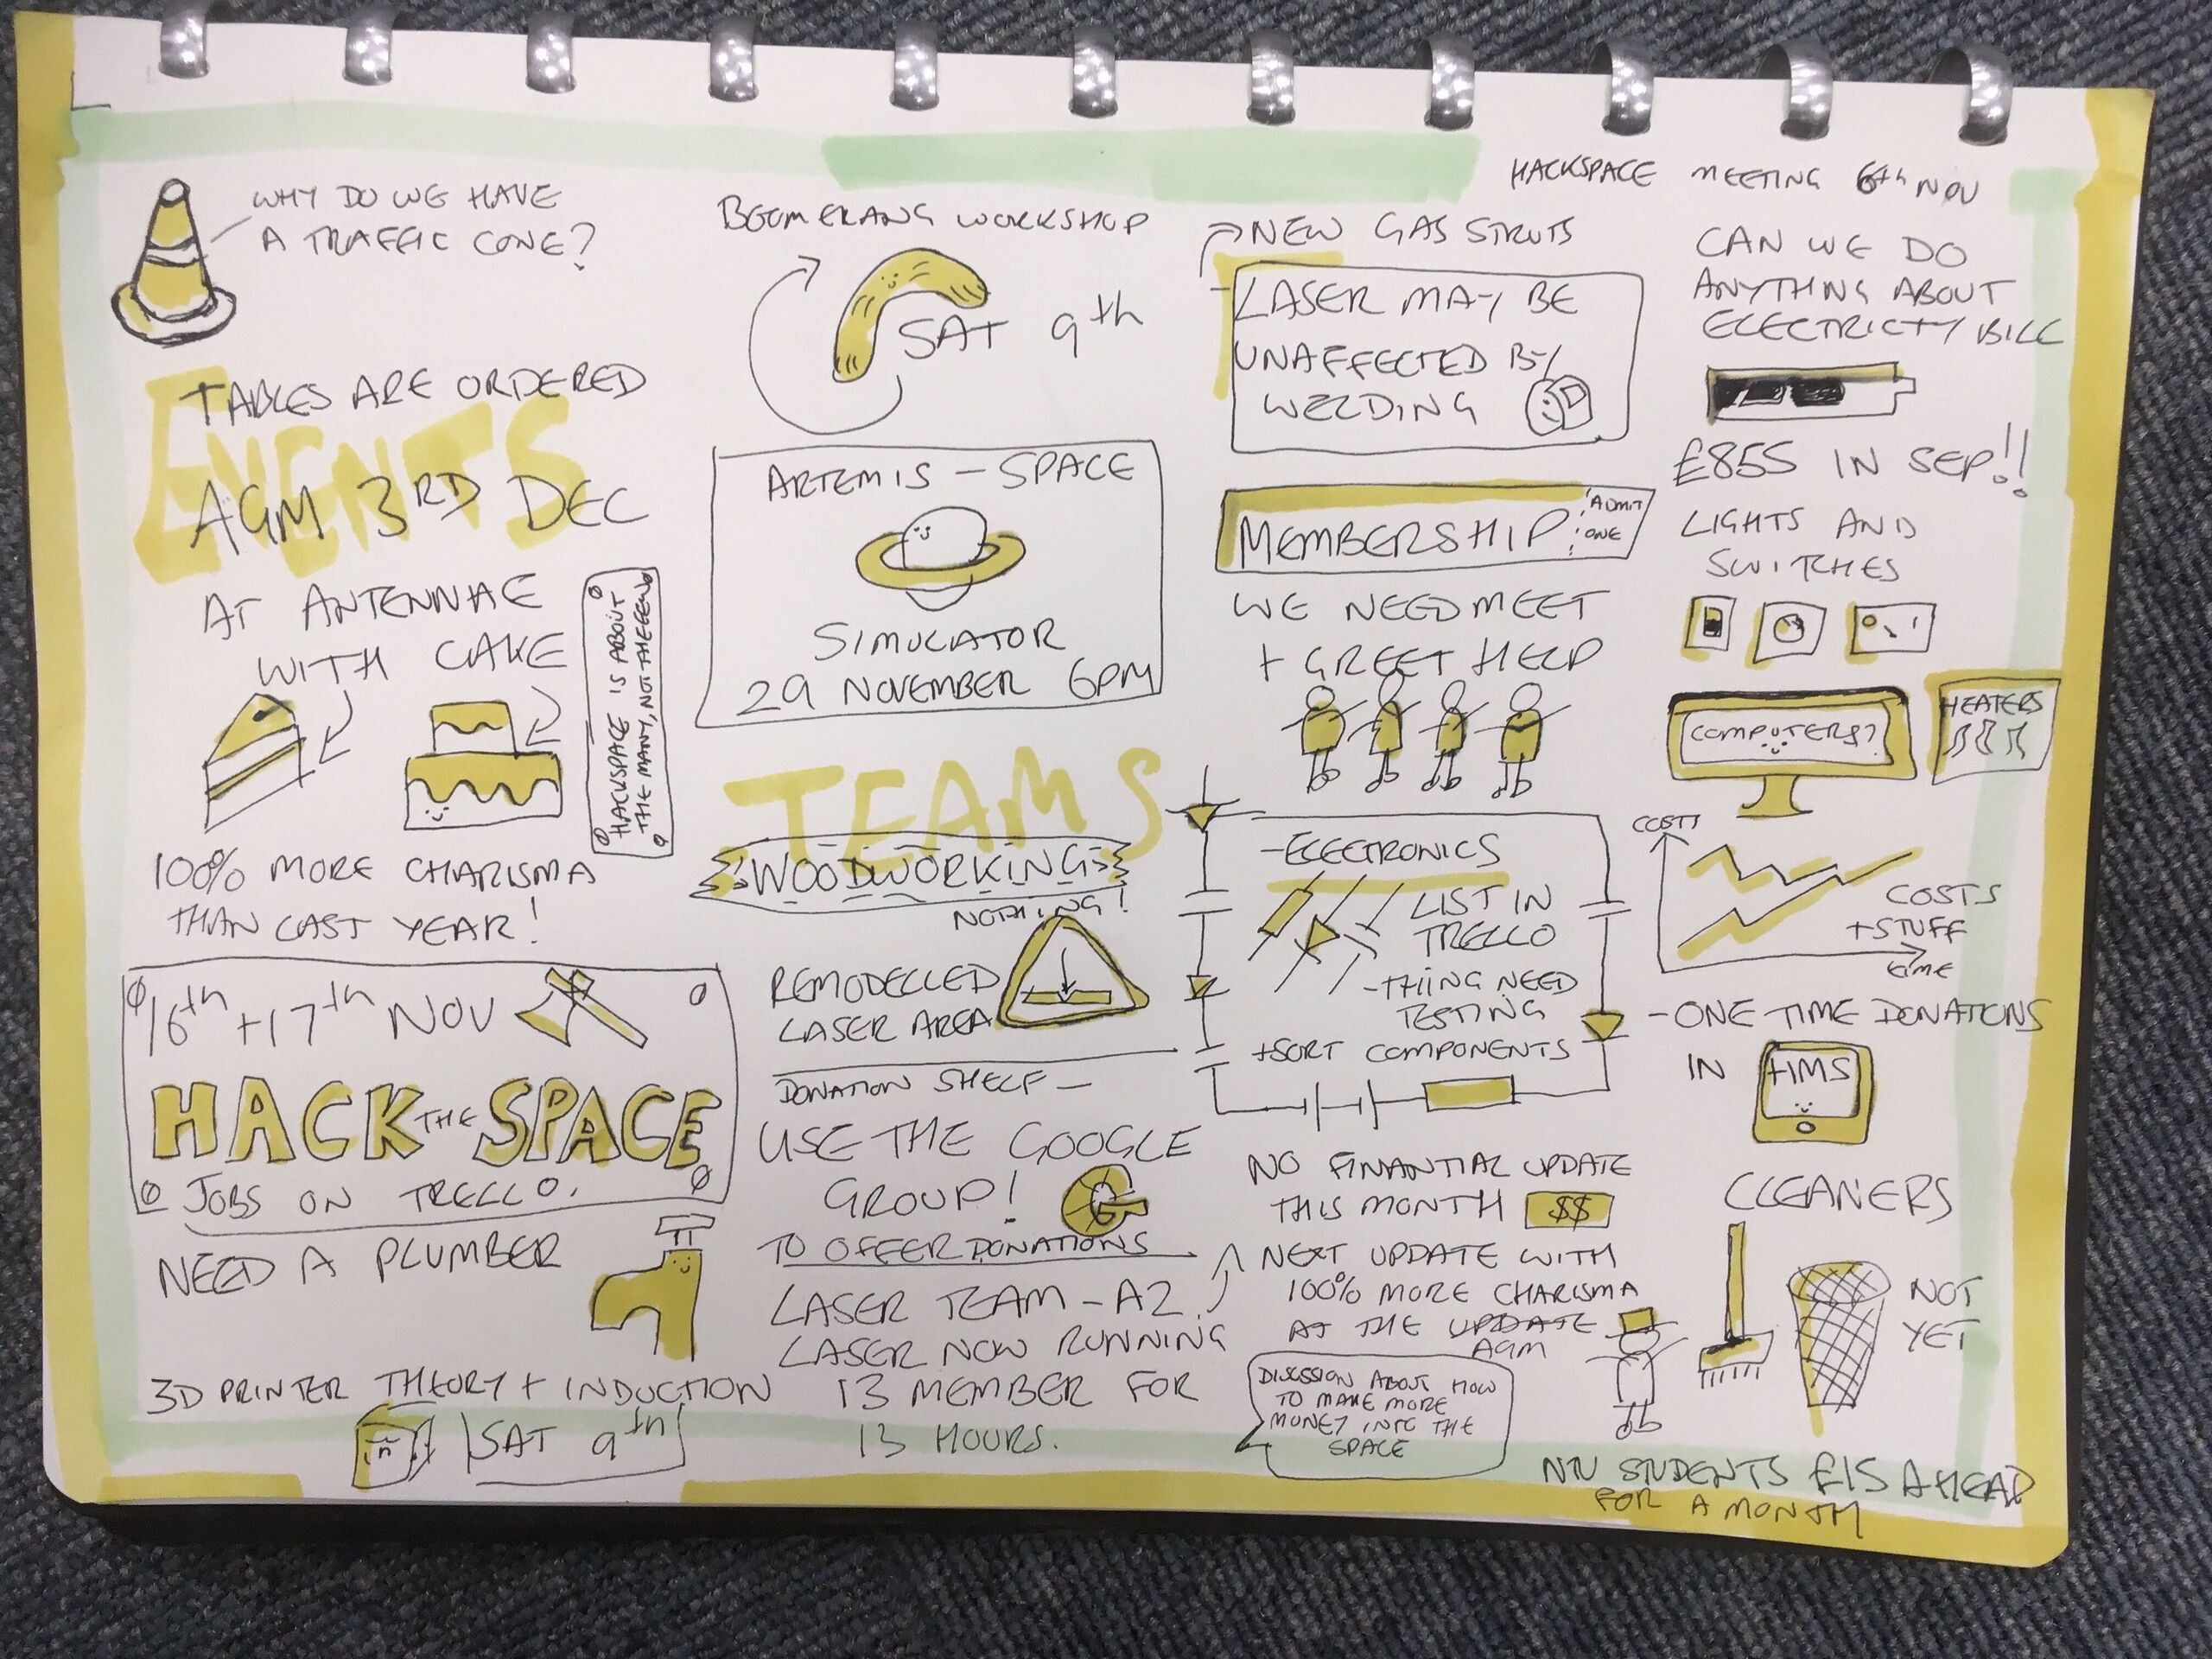 HACKSPACE MEETING 6th NOV
WHY DO WE HAVE
A TRAFFIC CONE?
TABLES ARE ORDERED
EVENTS
AGM 3RD DEC
AT ANTENNAE
WITH CAKE
HACKSPACE IS ABOUT
THE MANY, NOT THE FEW
100% MORE CHARISMA
THAN LAST YEAR!
16th + 17th NOV
HACK THE SPACE
JOBS ON TRELLO.
NEED A PLUMBER
3D PRINTER THEORY + INDUCTION
SAT 9th
BOOMERANG WORKSHOP
SAT 9th
ARTEMIS - SPACE
SIMULATOR
29 NOVEMBER 6PM
TEAMS
WOODWORKING
NOTHING!
REMODELLED
LASER AREA
DONATION SHELF -
USE THE GOOGLE
GROUP!
G
TO OFFER DONATIONS
LASER TEAM - A2
LASER NOW RUNNING
13 MEMBER FOR
13 HOURS.
NEW GAS STRUTS
LASER MAY BE
UNAFFECTED BY
WELDING
MEMBERSHIP
ADMIT
ONE
WE NEED MEET
+ GREET HELP
- ELECTRONICS
LIST IN
TRELLO
- THIING NEED
TESTING
+SORT COMPONENTS
NO FINANTIAL UPDATE
THIS MONTH $$
NEXT UPDATE WITH
100% MORE CHARISMA
AT THE UPDATE
AGM
DISCSSION ABOUT HOW
TO MAKE MORE
MONEY INTO THE
SPACE
CAN WE DO
ANYTHING ABOUT
ELECTRICTY BILL
£855 IN SEP!!
LIGHTS AND
SWITCHES
COMPUTERS?
HEATERS
COSTS
COSTS
+STUFF
time
- ONE TIME DONATIONS
IN HMS
CLEANERS
NOT
YET
NTU STUDENTS £15 AHEAD
FOR A MONTH